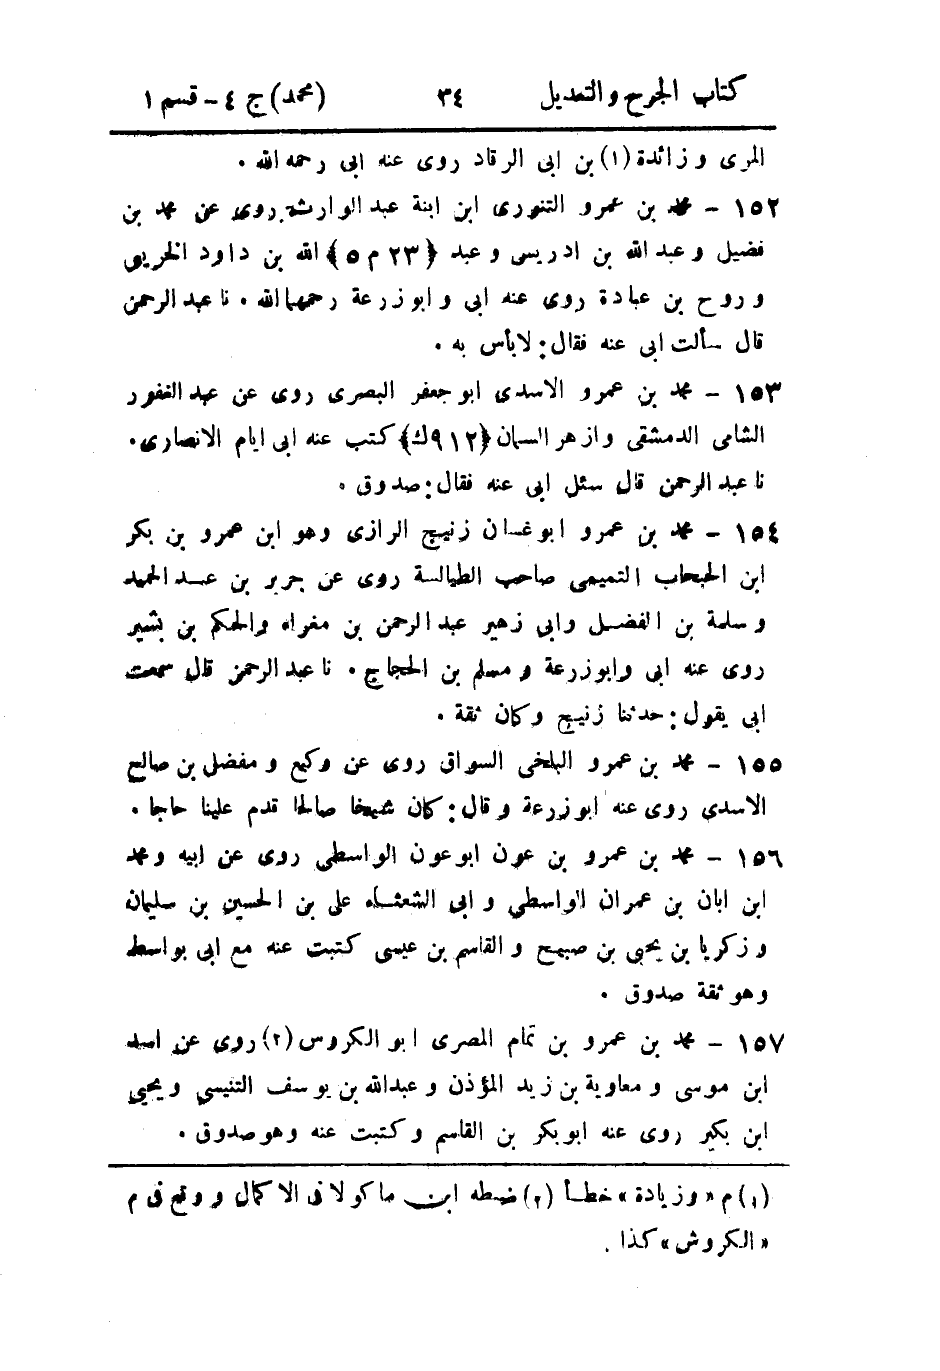 كتاب الجرح والتعديل ٣٤ (محمد) ج ٤ - قسم ١
المرى وزائدة (١) بن ابى الرقاد روى عنه ابى رحمه الله .
١٥٢ - محمد بن عمرو التنورى ابن ابنة عبد الوارث روى عن محمد بن
فضيل وعبد الله بن ادريس وعبد ﴿٢٣ م ٥﴾ الله بن داود الخريبى
وروح بن عبادة روى عنه ابى وابوزرعة رحمهما الله . نا عبد الرحمن
قال سألت ابى عنه فقال : لابأس به .
١٥٣ - محمد بن عمرو الاسدى ابو جعفر البصرى روى عن عبد الغفور
الشامى الدمشقى وازهر السمان ﴿٩١٢ ك﴾ كتب عنه ابى ايام الانصارى .
نا عبد الرحمن قال سئل ابى عنه فقال : صدوق .
١٥٤ - محمد بن عمرو ابو غسان زنيج الرازى وهو ابن عمرو بن بكر
ابن الحبحاب التميمى صاحب الطيالسة روى عن جرير بن عبد الحميد
وسلمة بن الفضل وابى زهير عبد الرحمن بن مغراء والحكم بن بشير
روى عنه ابى وابوزرعة ومسلم بن الحجاج . نا عبد الرحمن قال سمعت
ابى يقول : حدثنا زنيج وكان ثقة .
١٥٥ - محمد بن عمرو البلخى السواق روى عن وكيع ومفضل بن صالح
الاسدى روى عنه ابوزرعة وقال : كان شيخا صالحا قدم علينا حاجا .
١٥٦ - محمد بن عمرو بن عون ابو عون الواسطى روى عن ابيه ومحمد
ابن ابان بن عمران الواسطي وابى الشعثاء على بن الحسين بن سليمان
وزكريا بن يحيى بن صبيح والقاسم بن عيسى كتبت عنه مع ابى بواسط
وهو ثقة صدوق .
١٥٧ - محمد بن عمرو بن تمام المصرى ابو الكروس (٢) روى عن اسد
ابن موسى ومعاوية بن زيد المؤذن وعبدالله بن يوسف التنيسي ويحيى
ابن بكير روى عنه ابو بكر بن القاسم وكتبت عنه وهو صدوق .
(١) م «وزيادة» خطأ (٢) ضبطه ابن ماكولا فى الاكمال ووقع فى م
«الكروش» كذا .